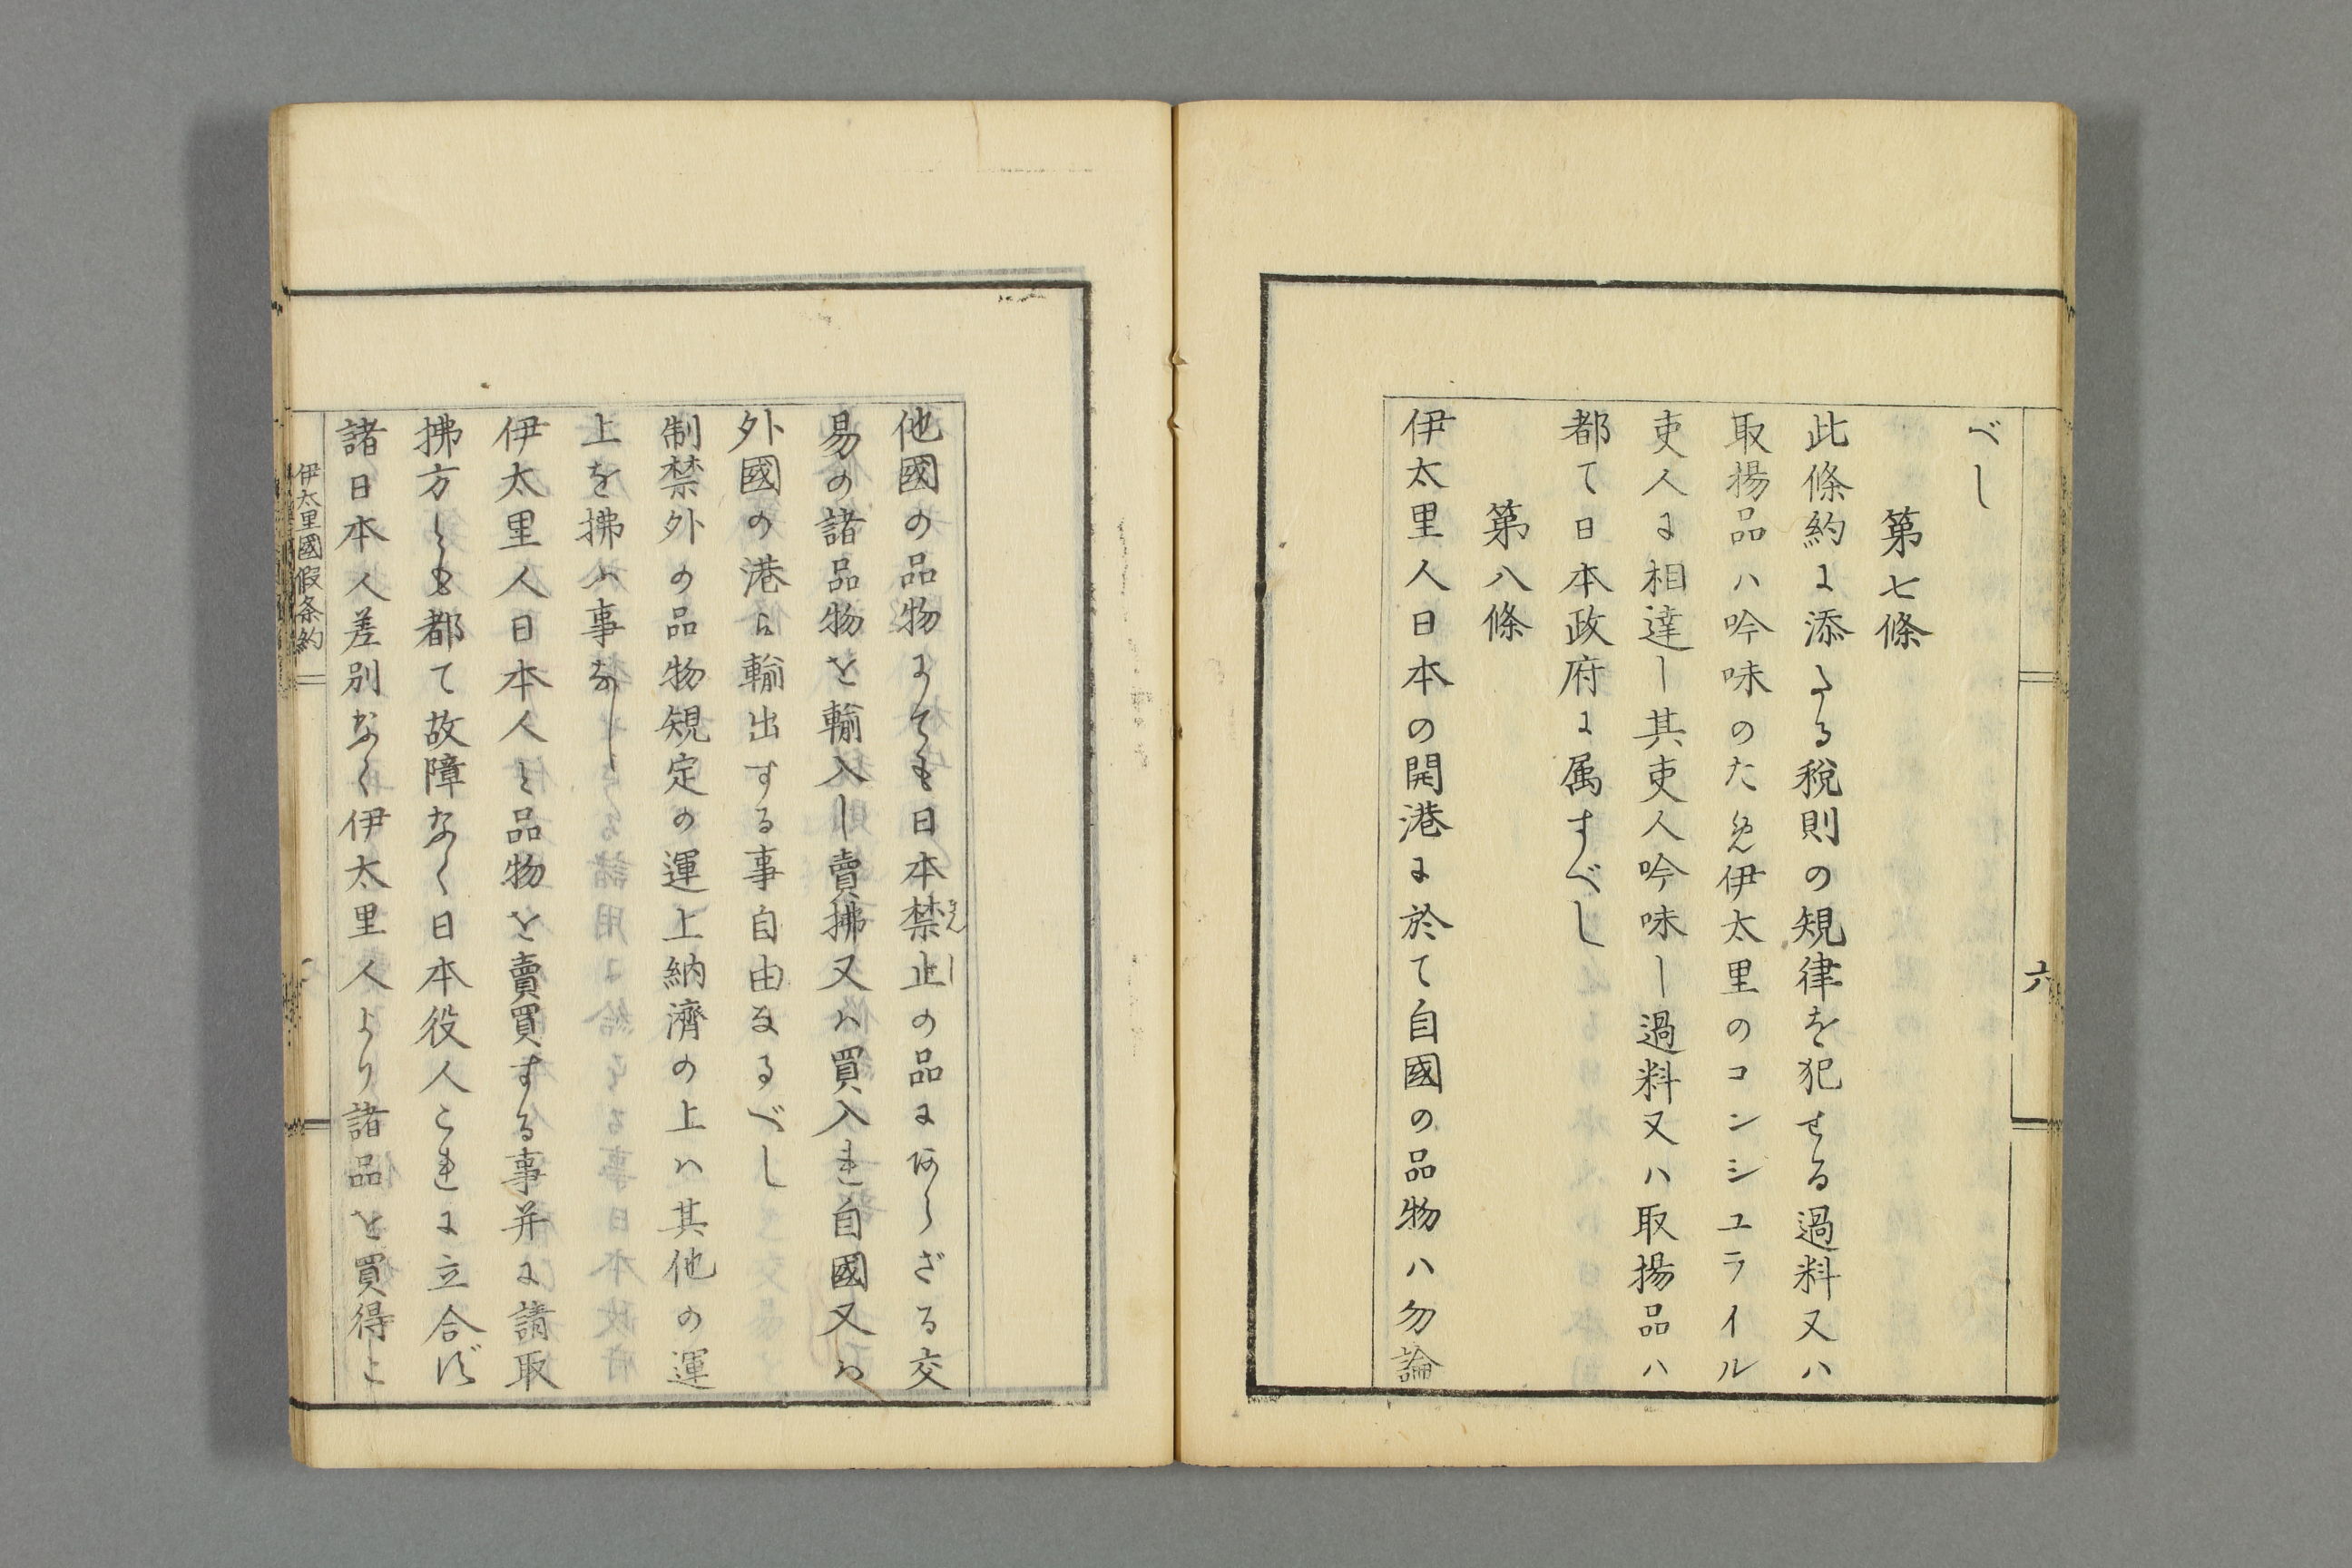 六
べし
第七條
此條約に添たる税則の規律を犯せる過料又ハ
取揚品ハ吟味のため伊太里のコンシユライル
吏人に相達し其吏人吟味し過料又ハ取揚品ハ
都て日本政府に属すべし
第八條
伊太里人日本の開港に於て自國の品物ハ勿論
他國の品物にても日本禁止の品にあらざる交
きん し
易の諸品物を輸入し賣拂又ハ買入れ自國又ハ
外國の港に輸出する事自由なるべし
制禁外の品物規定の運上納濟の上ハ其他の運
上を拂ハ事なし
伊太里人日本人と品物を賣買する事并に請取
拂方とも都て故障なく日本役人これに立合ず
諸日本人差別なく伊太里人より諸品を買得こ
伊太里國假条約